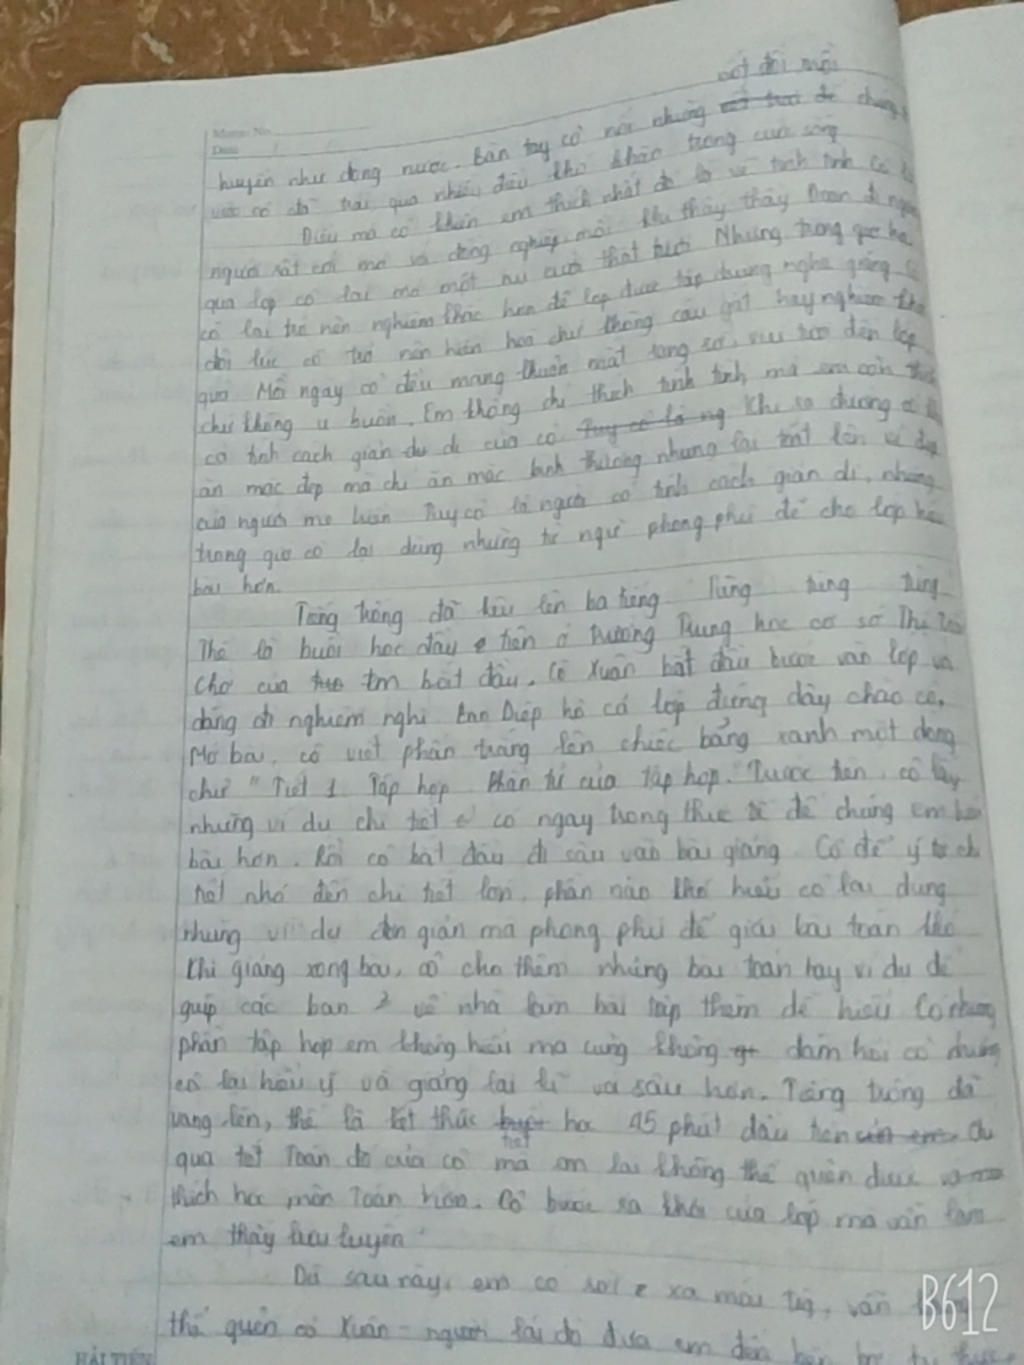 Memo No.
Date / /
một đôi mỗi
huyền như dòng nước. Bàn tay cô nổi những
vất nó đã trải qua nhiều điều khó khăn trong cuộc sống
Điều mà cô khiến em thích nhất đó là về tính tình Cô là
người rất cởi mở và đồng nghiệp mỗi khi thấy thầy Đoan đi ngang
qua lớp cô lại mở một nụ cười thật tươi Nhưng trong giờ học
cô lại trở nên nghiêm khắc hơn để lớp được tập trung nghe giảng
đôi lúc cô trở nên hiền hoà chứ không cau gắt hay nghiêm khắc
quá Mỗi ngày cô đều mang khuôn mặt rạng rỡ, vui tươi đến lớp
chứ không u buồn. Em không chỉ thích tính tình mà em còn thích
cả tính cách giản dị của cô Tuy cô là ng Khi ra đường
ăn mặc đẹp mà chỉ ăn mặc bình thường nhưng lại toát lên vẻ đẹp
của người mẹ hiền Tuy cô là người có tính cách giản dị, nhưng
trong giờ cô lại dùng những từ ngữ phong phú để cho lớp
bài hơn.
Tiếng trống đã kêu lên ba tiếng Tùng tùng tùng
Thế là buổi học đầu tiên ở trường Trung học cơ sở Thị Trấn
Chờ của em bắt đầu. Cô Xuân bắt đầu bước vào lớp và
dáng đi nghiêm nghị Bạn Diệp hô cả lớp đứng dậy chào cô.
Mở bài, cô viết phấn trắng lên chiếc bảng xanh một dòng
chữ "Tiết 1 Tập hợp. Phần tử của tập hợp." Trước tiên, cô lấy
những ví dụ chi tiết có ngay trong thực tế để chúng em hiểu
bài hơn. Rồi cô bắt đầu đi sâu vào bài giảng Cô để ý từ chi
tiết nhỏ đến chi tiết lớn, phần nào khó hiểu cô lại dùng
những ví dụ đơn giản mà phong phú để giải bài toán khó
Khi giảng xong bài, cô cho thêm những bài toán hay ví dụ để
giúp các bạn về nhà làm bài tập thêm dễ hiểu Có những
phần tập hợp em không hiểu mà cũng không dám hỏi cô nhưng
cô lại hiểu ý và giảng lại kĩ và sâu hơn. Tiếng trống đã
vang lên, thế là kết thúc tiết học 45 phút đầu tiên
qua tiết Toán đó của cô mà em lại không thể quên được
thích học môn Toán hơn. Cô bước ra khỏi cửa lớp mà vẫn làm
em thấy lưu luyến
Dù sau này, em có rời xa mái trg, vẫn
thể quên cô Xuân - người lái đò đưa em đến bến bờ tri thức.
HẢI TIẾN
B612